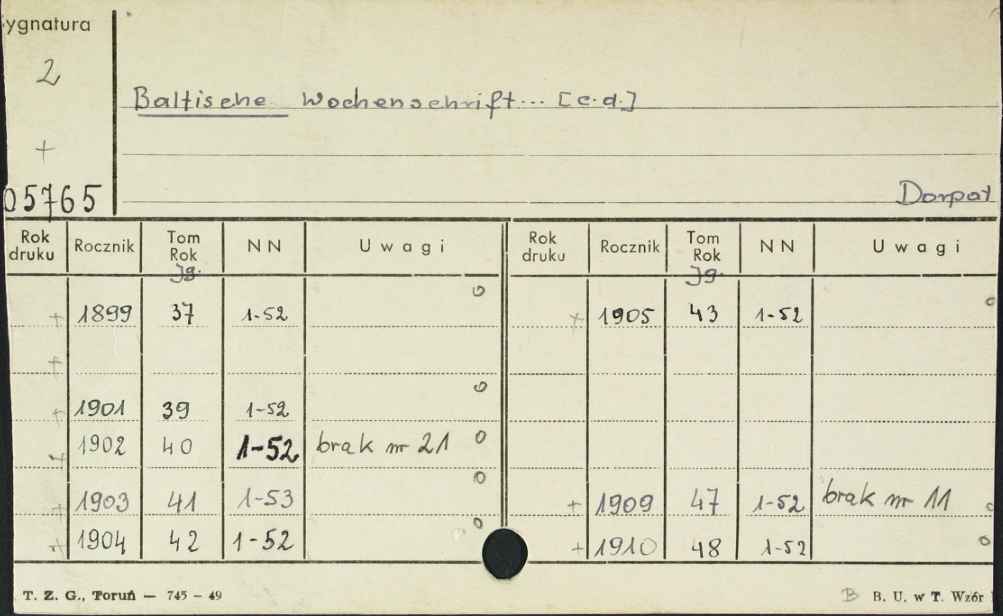 ygnatura
2
+
05765
Baltische Wochenschrift... [c.d.]
Dorpat
Rok druku Rocznik Tom Rok Jg. NN Uwagi Rok druku Rocznik Tom Rok Jg. NN Uwagi
+ 1899 37 1-52 + 1905 43 1-52
+
+ 1901 39 1-52
+ 1902 40 1-52 brak nr 21
+ 1903 41 1-53 + 1909 47 1-52 brak nr 11
+ 1904 42 1-52 + 1910 48 1-52
T. Z. G., Toruń — 745 – 49
B B. U. w T. Wzór